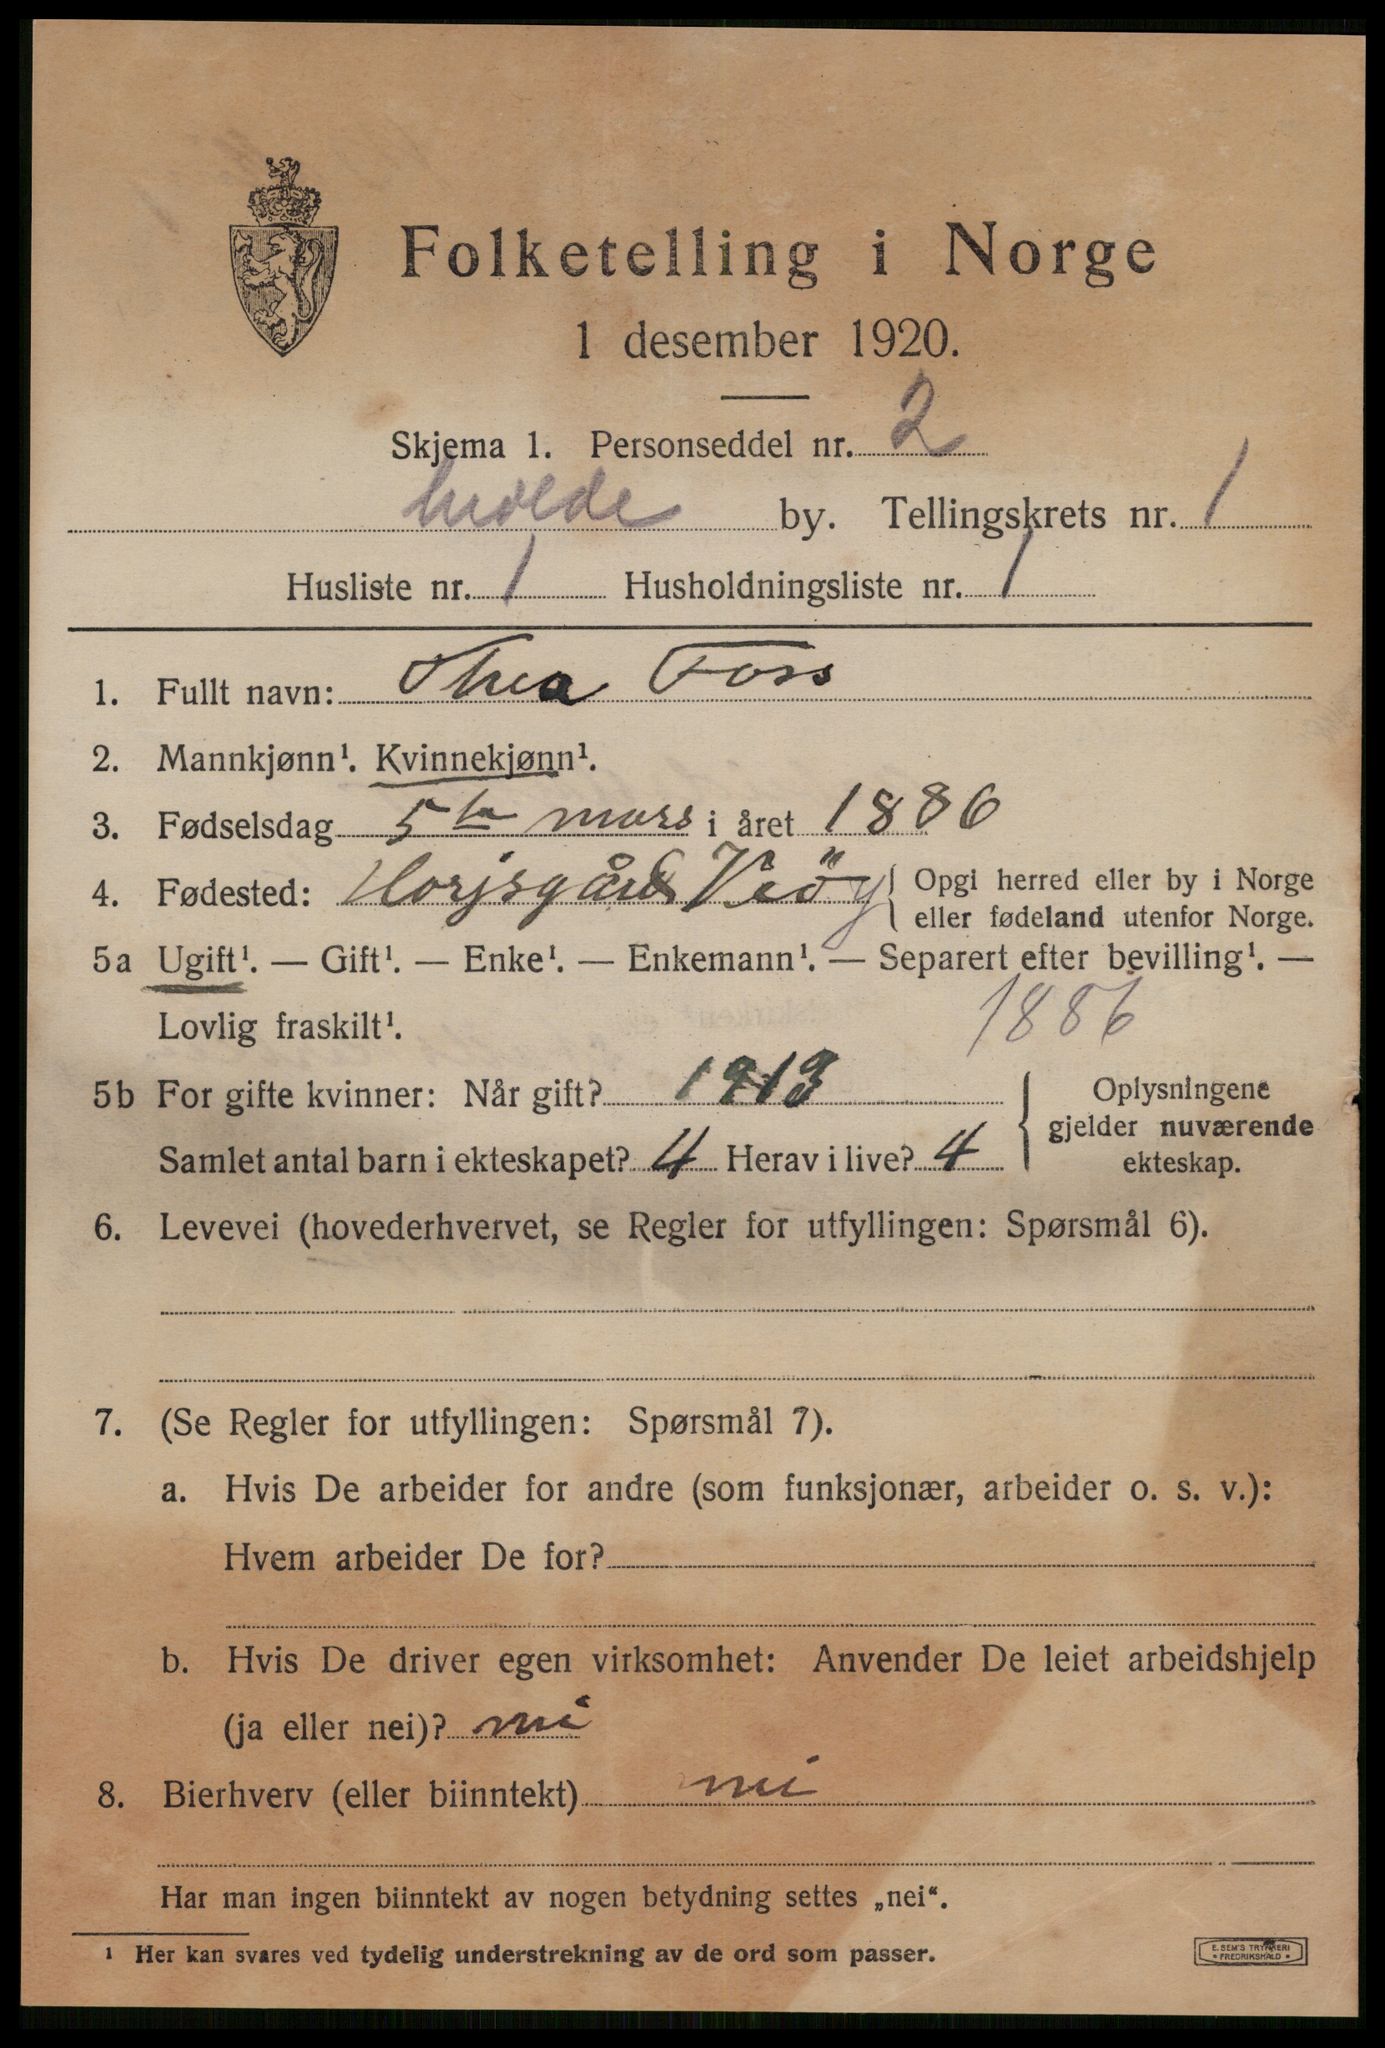 Folketelling i Norge
1 desember 1920.
Skjema 1. Personseddel nr. 2
Molde by. Tellingskrets nr. 1
Husliste nr. 1 Husholdningsliste nr. 1
1. Fullt navn: Thea Foss
2. Mannkjønn¹. Kvinnekjønn¹.
3. Fødselsdag 5te mars i året 1886
4. Fødested: Veöy { Opgi herred eller by i Norge
eller fødeland utenfor Norge.
5a Ugift¹. — Gift¹. — Enke¹. — Enkemann¹. — Separert efter bevilling¹. —
Lovlig fraskilt¹. 1886
5b For gifte kvinner: Når gift? 1913 { Oplysningene
gjelder nuværende
Samlet antal barn i ekteskapet? 4 Herav i live? 4 ekteskap.
6. Levevei (hovederhvervet, se Regler for utfyllingen: Spørsmål 6).
7. (Se Regler for utfyllingen: Spørsmål 7).
a. Hvis De arbeider for andre (som funksjonær, arbeider o. s. v.):
Hvem arbeider De for?
b. Hvis De driver egen virksomhet: Anvender De leiet arbeidshjelp
(ja eller nei)? nei
8. Bierhverv (eller biinntekt) nei
Har man ingen biinntekt av nogen betydning settes „nei“.
¹ Her kan svares ved tydelig understrekning av de ord som passer.
E. SEM'S TRYKKERI
FREDRIKSHALD